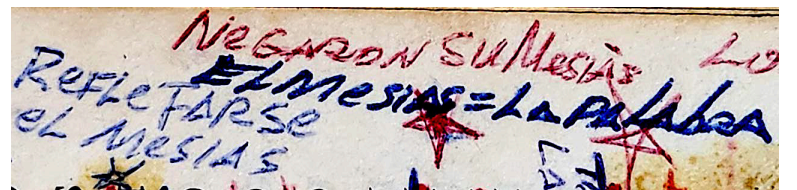 NeGARON SU Mesías LO
EL Mesías = LA PALAbRA
REFLeTARSE
eL MeSIAS